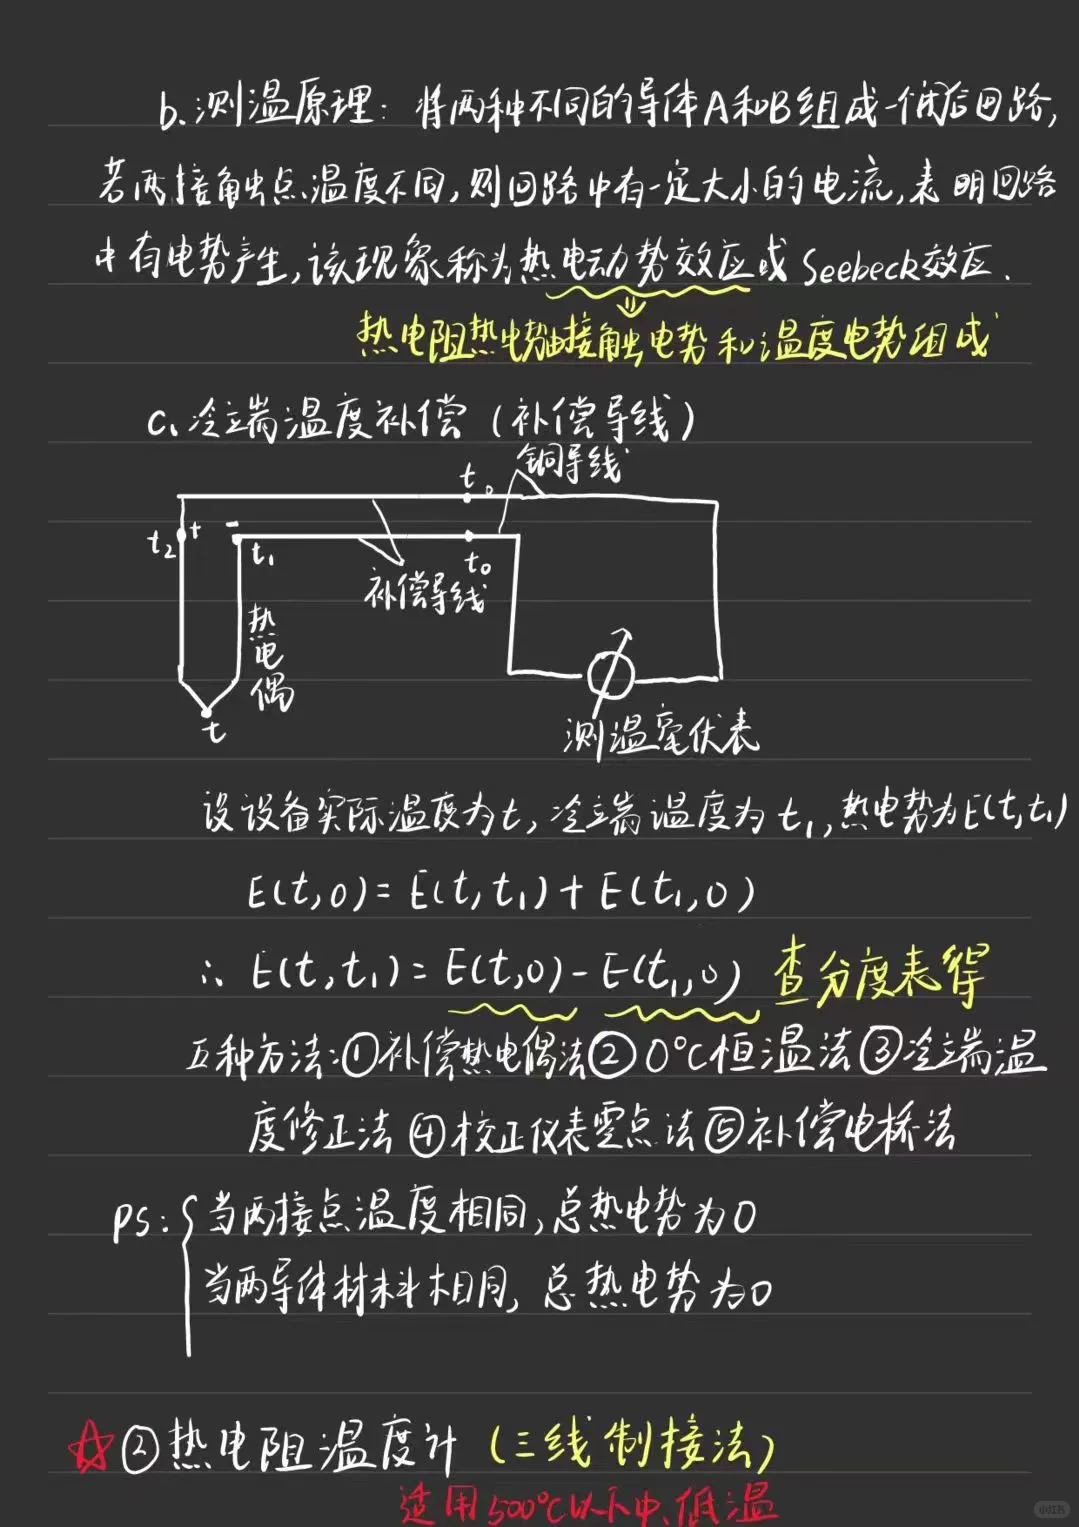 b.测温原理:将两种不同的导体A和B组成一闭合回路,
若两接触点温度不同,则回路中有一定大小的电流,表明回路
中有电势产生,该现象称为热电动势效应或Seebeck效应.
热电阻热电势由接触电势和温度电势组成
c.冷端温度补偿(补偿导线)
铜导线
t₀
t₂
+
-
t₁
t₀
补偿导线
热电偶
t
测温毫伏表
设设备实际温度为t,冷端温度为t₁,热电势为E(t,t₁)
E(t,0)=E(t,t₁)+E(t₁,0)
∴E(t,t₁)=E(t,0)-E(t₁,0) 查分度表得
五种方法:①补偿热电偶法②0℃恒温法③冷端温
度修正法④校正仪表零点法⑤补偿电桥法
PS:{当两接点温度相同,总热电势为0
当两导体材料相同,总热电势为0
☆②热电阻温度计(三线制接法)
适用500℃以下中、低温